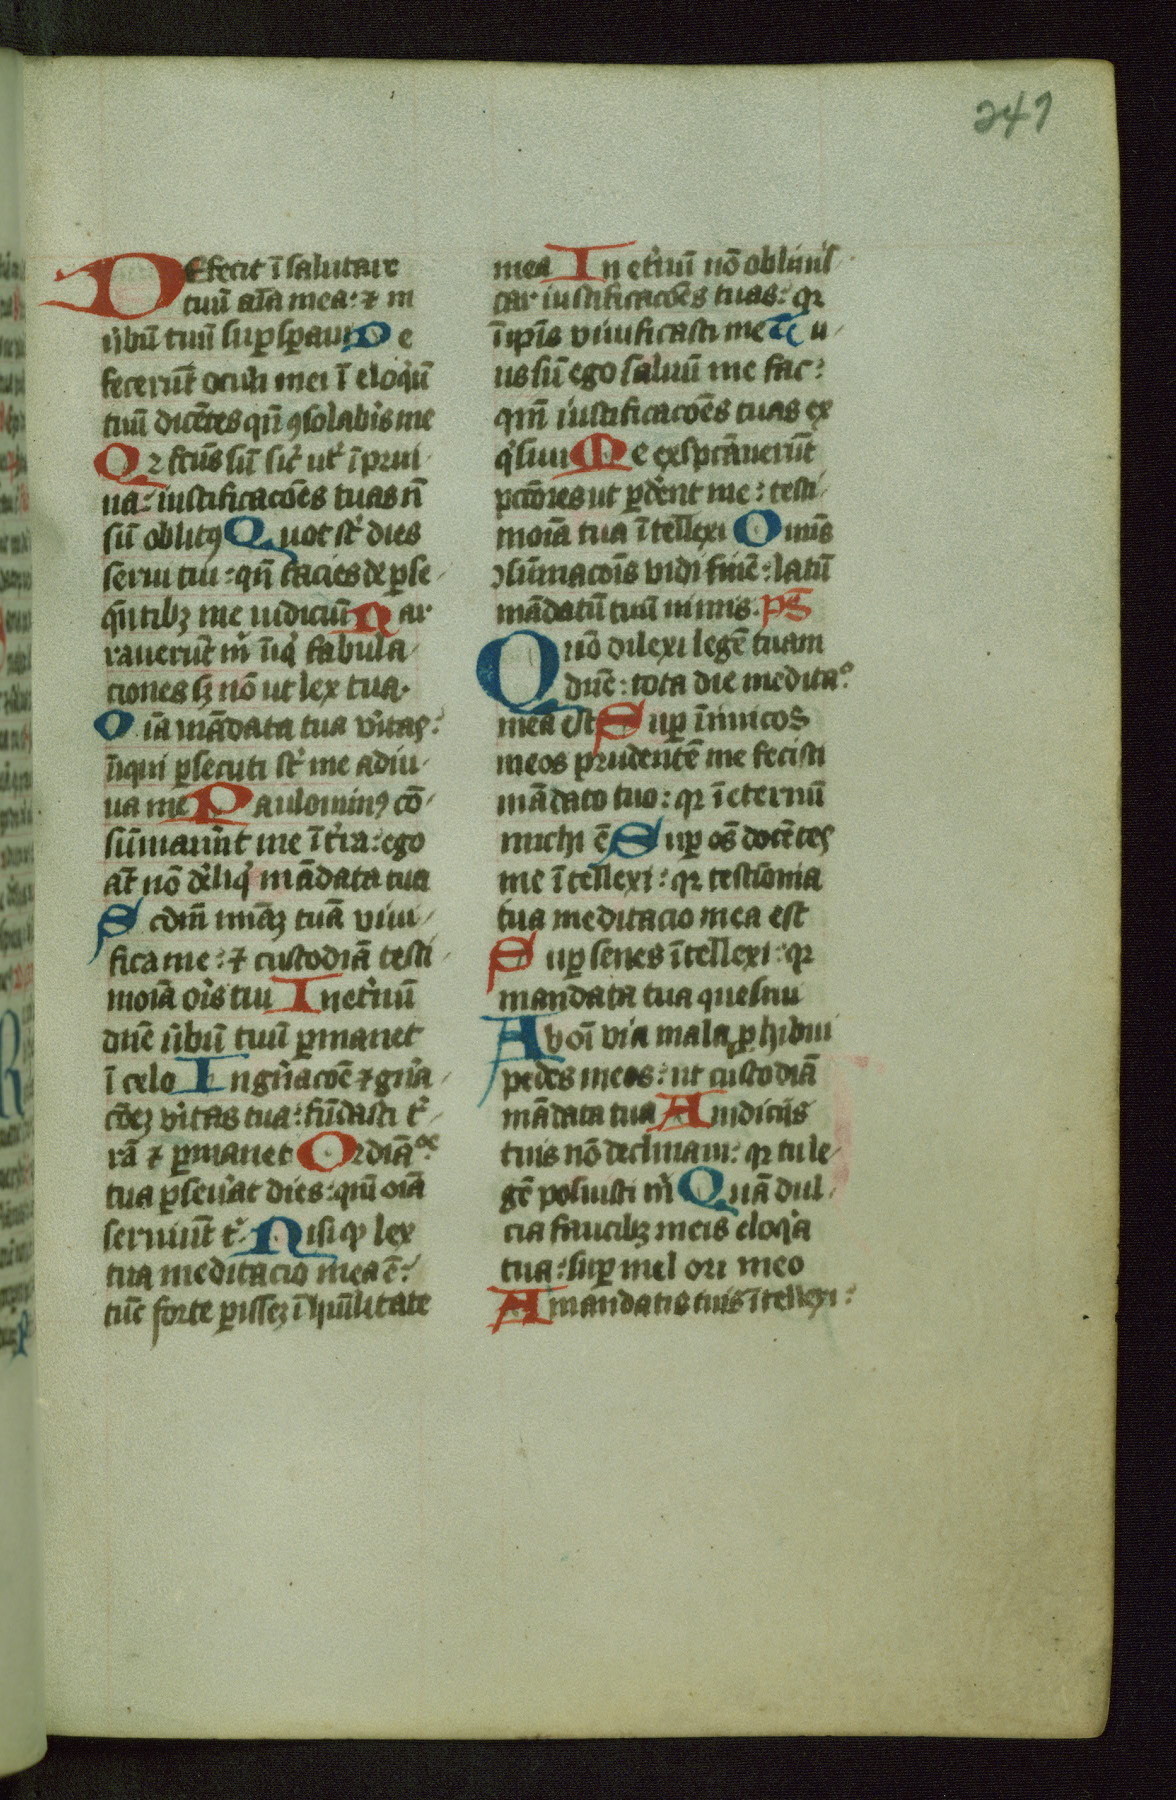 241
Defecit ī salutare
tuū aīa mea: ⁊ in
ūbū tuū suꝑspaui De
fecerūt oculi mei ī eloqͥū
tuū dicētes qn̄ ꝯsolabis me
Qꝛ fc̄us sū sic̄ ut͛ ī prui
na: iustificacōes tuas n̄
sū oblitꝰ Quot st̄ dies
serui tui: qn̄ facies de ꝑse
qn̄tibꝫ me iudiciū Nar
rauerūt m̄ iīqͥ fabula
ciones sꝫ nō ut lex tua.
Oīa mādata tua v͛itas:
īiqui ꝑsecuti st̄ me adiu
ua me Paulominꝰ cō
sūmaūnt me ī t͛ra: ego
at̄ nō d͛liqͥ mādata tua
Scdm̄ mīaꝫ tuā viui
fica me: ⁊ custodiā testi
moīa oīs tui In et͛nū
dn̄e ūbū tuū ꝑmanet
ī celo In gn̄acōe ⁊ gn̄a
cōeꝫ v͛itas tua: fūdasti t͛
rā ⁊ ꝑmanet Ordiāoe
tua ꝑseu͛at dies: qm̄ oīa
seruiūt t͛. Nisi qͥ lex
tua meditacio mea ē:
tūc forte ꝑissēꝫ ī hūilitate
mea In et͛nū nō obliuis
car iustificacōes tuas: qꝛ
ī ip̄is viuificasti me Tu
us sū ego saluū me fac:
qm̄ iustificacōes tuas ex
qͥsiui Me exspc̄auerūt
pctōres ut ꝑd͛ent me: testi
moīa tua ītellexi Omīs
ꝯsūmacōis vidi finē: latū
mādatū tuū nimis. pͣs
Quō dilexi legē tuam
dn̄e: tota die meditaͦ
mea est Suꝑ īimicos
meos prudentē me fecisti
mādato tuo: qꝛ ī eternū
michi ē Suꝑ oēs docētes
me ītellexi: qꝛ testimonia
tua meditacio mea est
Suꝑ senes ītellexi: qꝛ
mandata tua quesiui
Ab oī via mala ꝓhibui
pedes meos: ut custodiā
mādata tua A iudicijs
tuis nō declinaui: qꝛ tu le
gē posuisti m̄ Quā dul
cia faucibꝫ meis eloqͥa
tua: suꝑ mel ori meo
A mandatis tuis ītellexi: